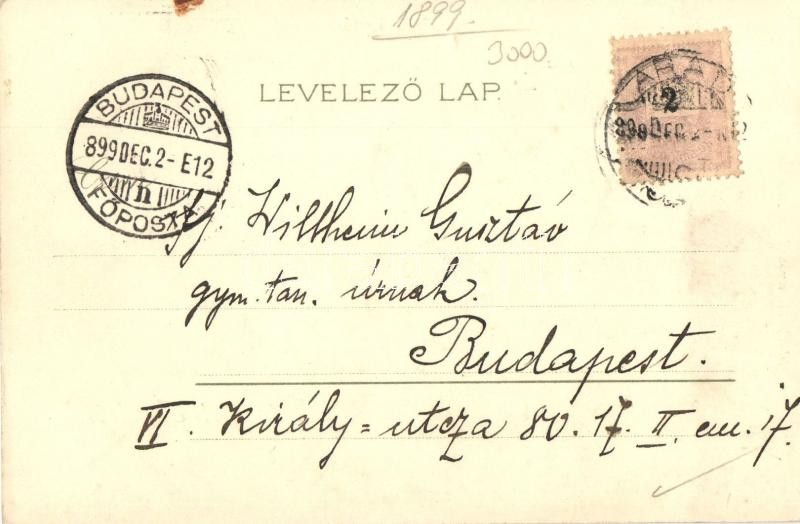 1899.
3000
LEVELEZŐ LAP.
BUDAPEST
899 DEC. 2 - E12
n
FŐPOSTA
ARAD
2
899 DEC. 2
Willheim Gusztáv
gym. tan. úrnak.
Budapest.
VI. Király=utcza 80. 17. II. em. 17.